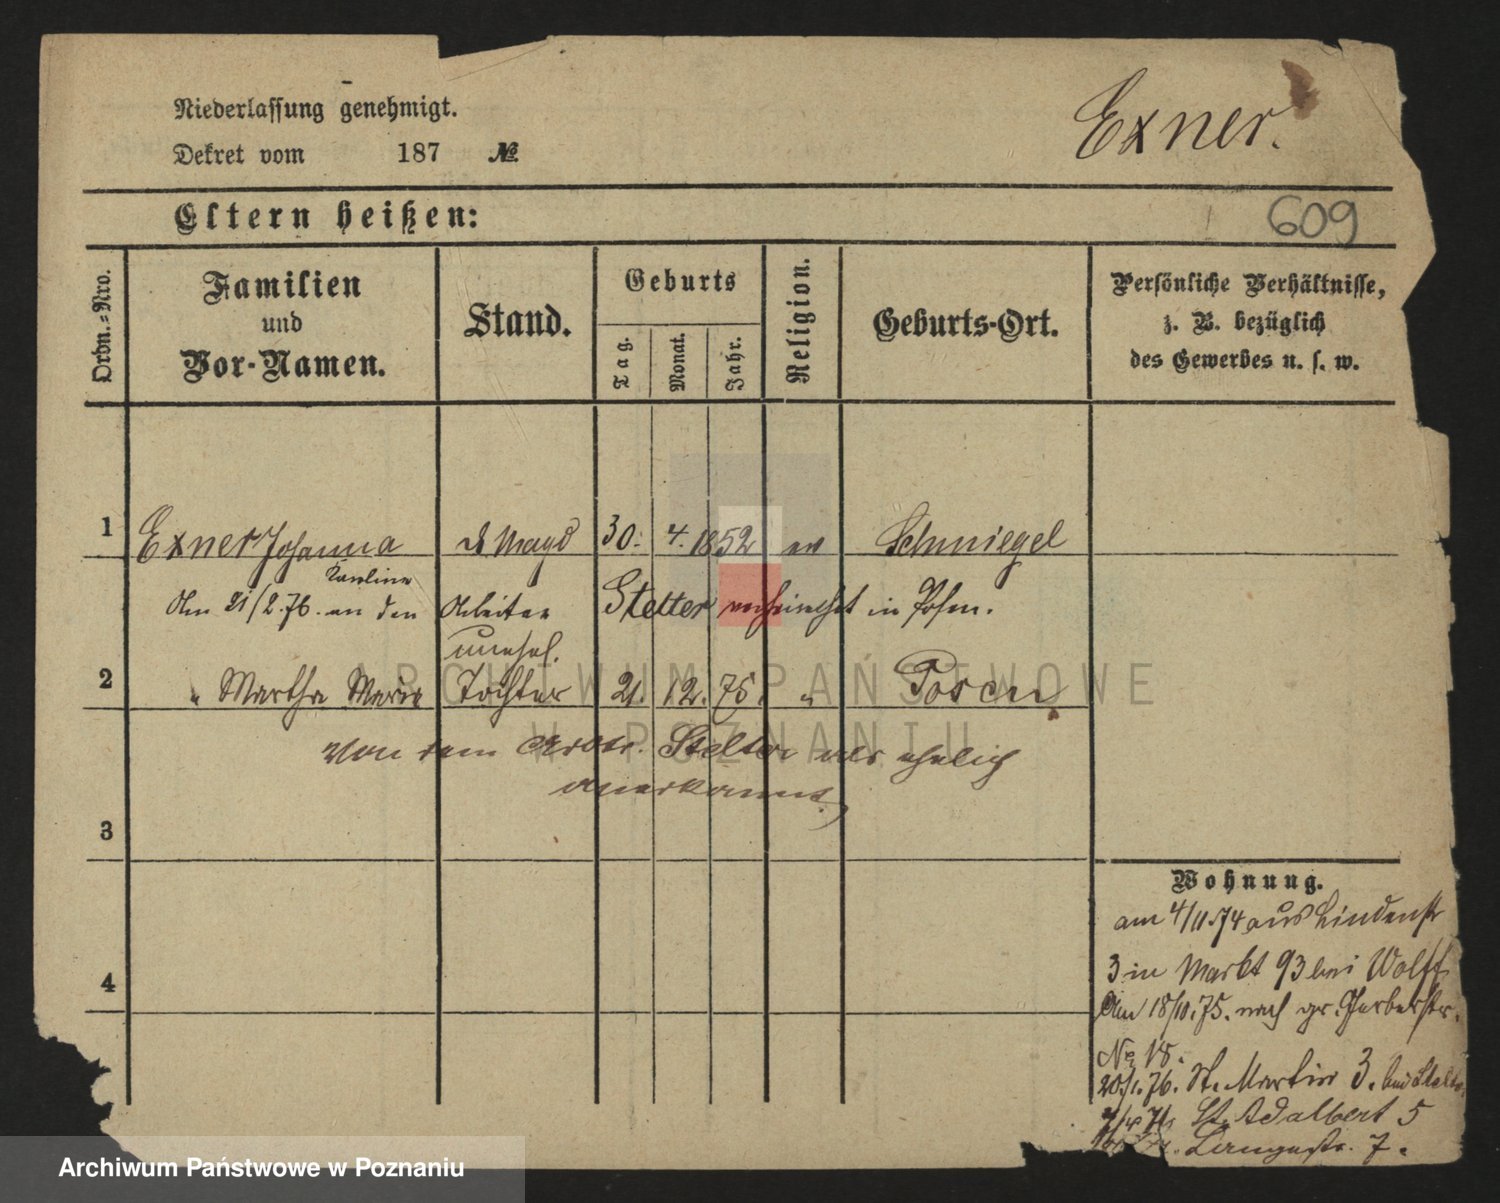 Niederlassung genehmigt.
Exner.
Dekret vom 187 №
Eltern heißen:
609
Ordn.-Nro.
Familien und Vor-Namen.
Stand.
Geburts
Tag.
Monat.
Jahr.
Religion.
Geburts-Ort.
Persönliche Verhältnisse,
z. B. bezüglich
des Gewerbes u. s. w.
1 Exner Johanna d. Magd 30. 4. 1852 ev Schmiegel
Karline
Am 21/2.76. an den Arbeiter Stelter verheirathet in Posen.
unehel.
2 " Martha Marie Tochter 21. 12. 75. " Posen
Von dem Arbtr. Stelter als ehelich
anerkannt.
3
4
Wohnung.
am 4/11.74 aus Lindenstr
3 in Markt 93 bei Wolff
Am 18/10.75. nach gr. Gerberstr.
No 18.
20/1.76. St. Martin 3. bei Stelter
St. Adalbert 5
Langestr. 7.
ARCHIWUM PAŃSTWOWE
W POZNANIU
Archiwum Państwowe w Poznaniu